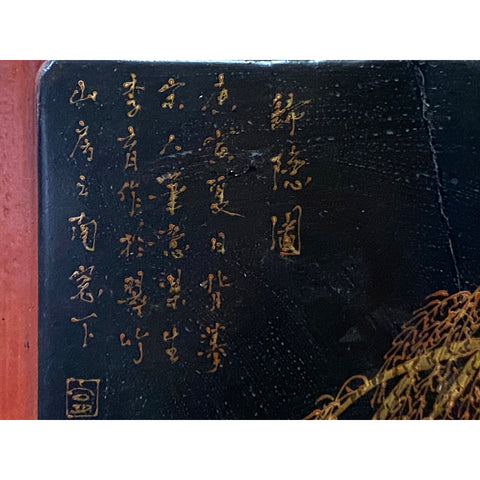 歸隱圖
庚寅夏日背摹
宋人筆意樂生
李育作於翠竹
山房之南窗下